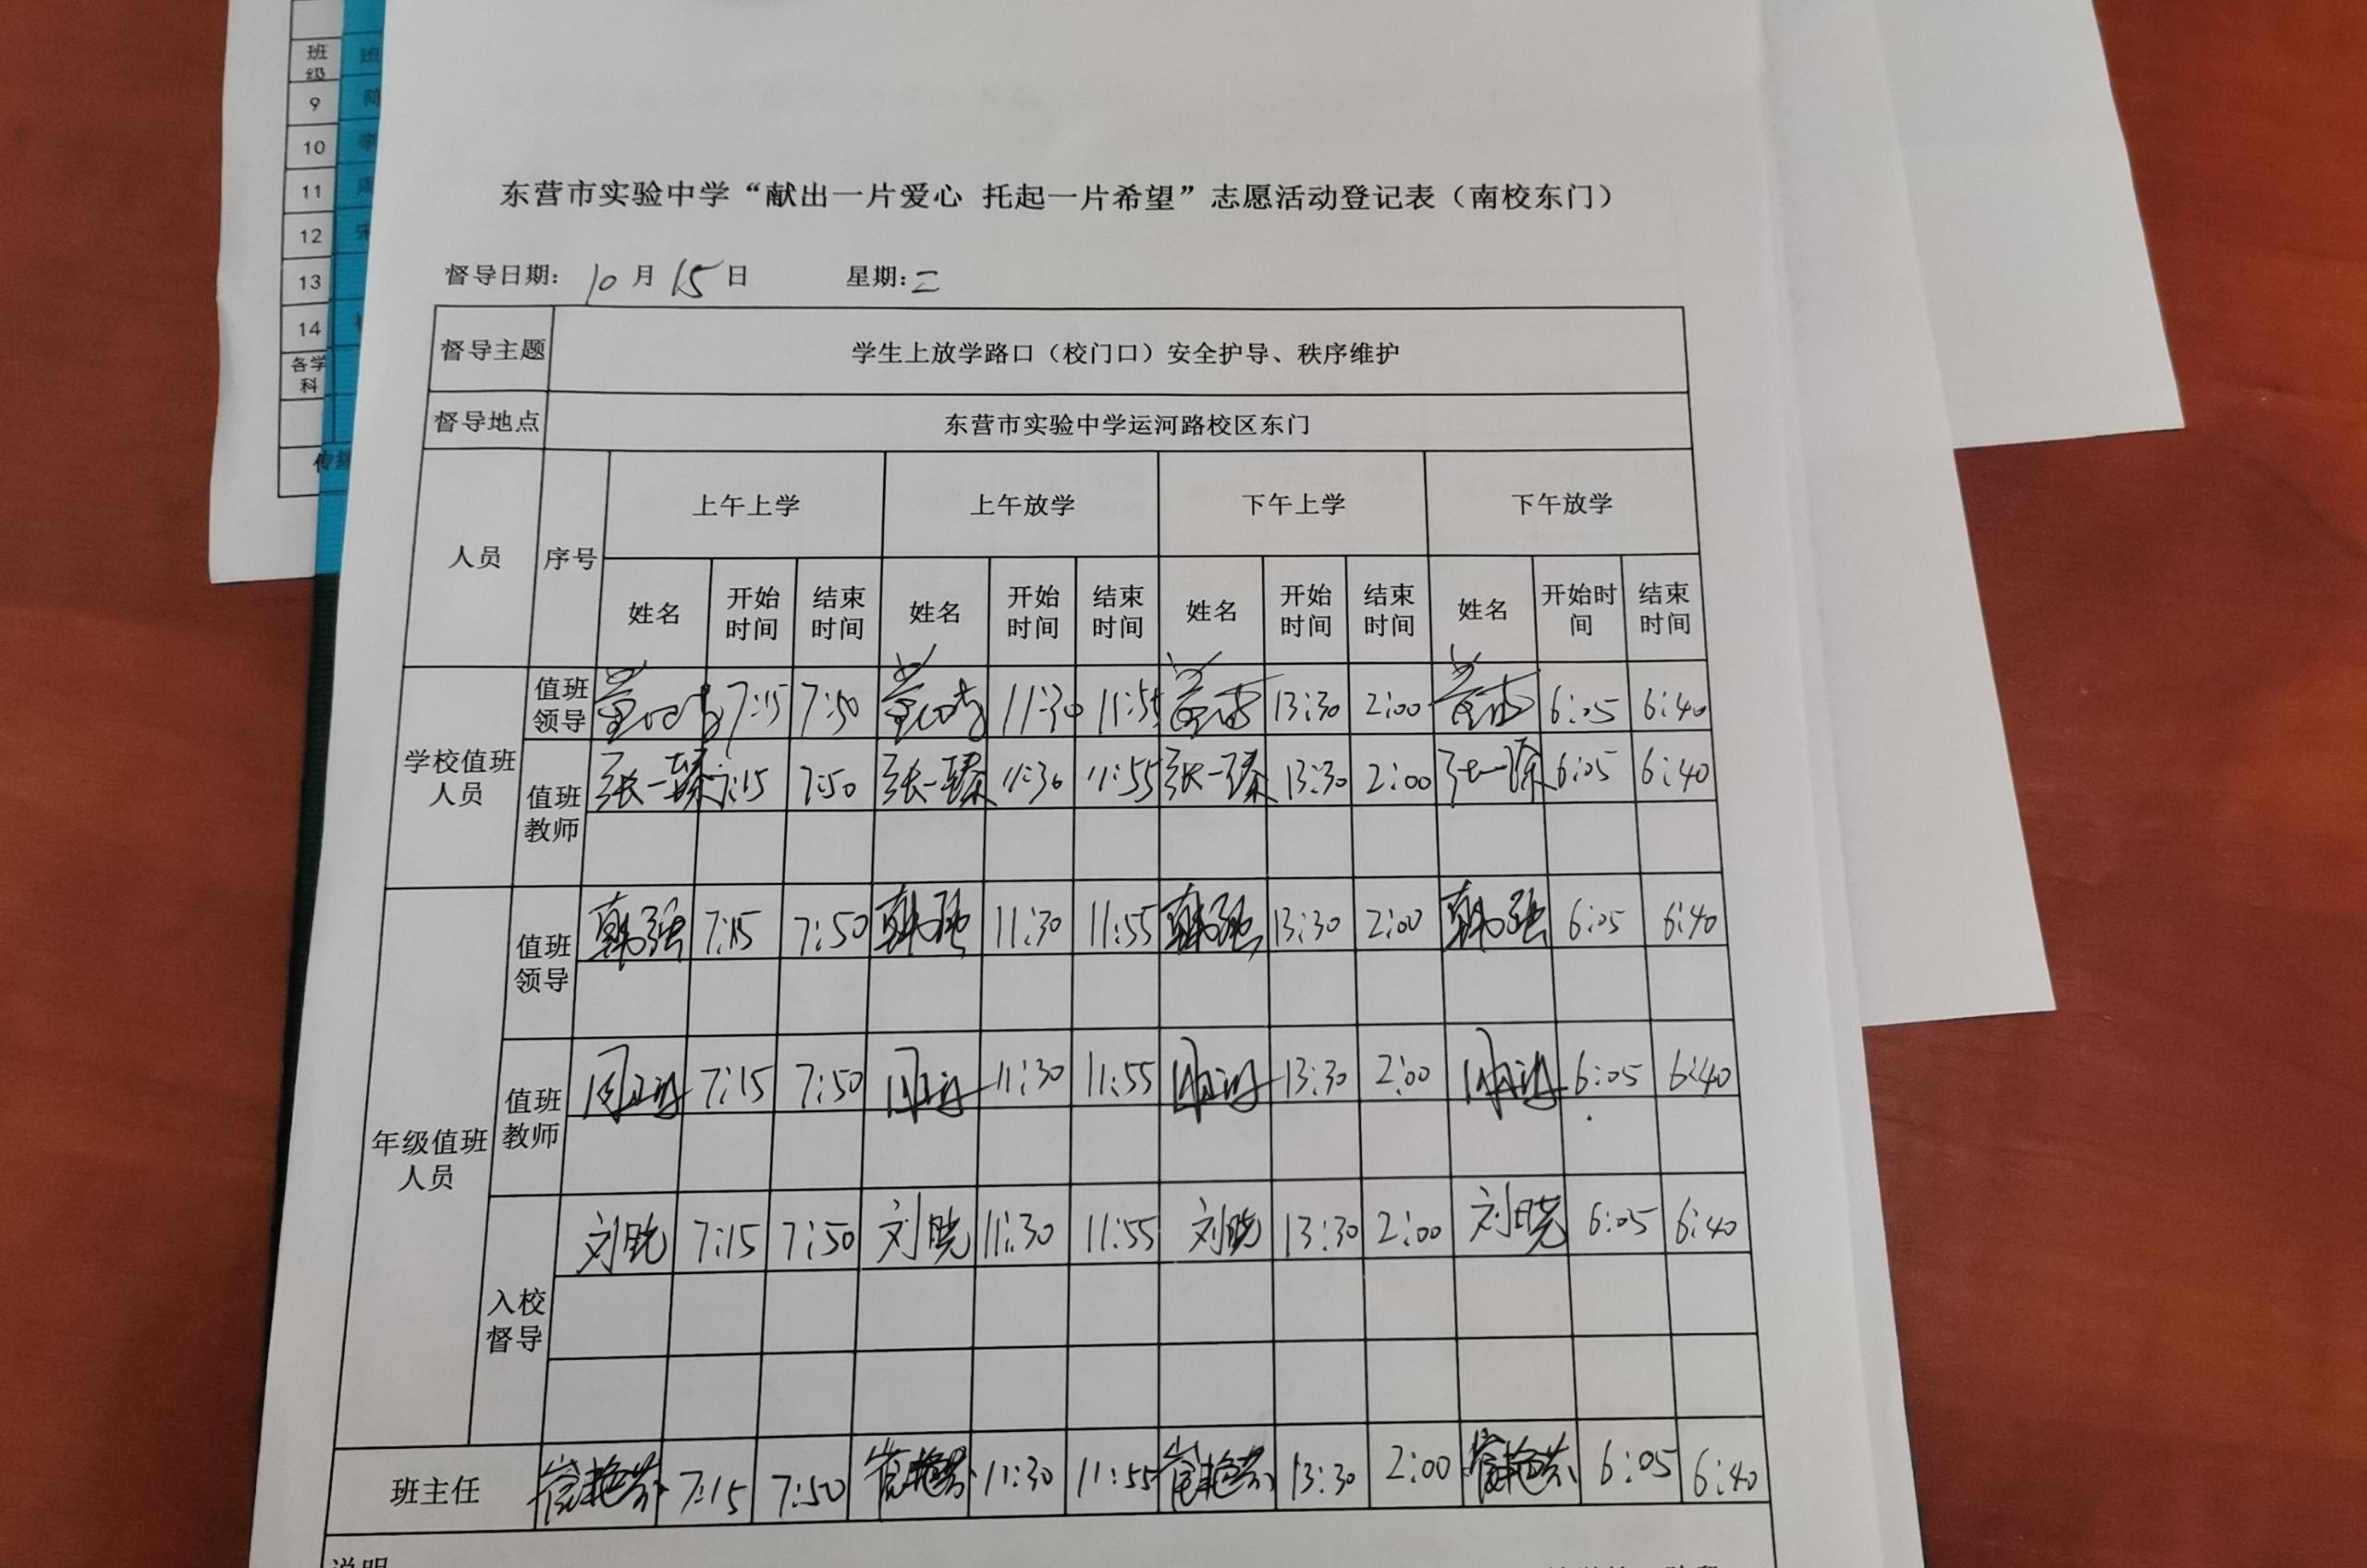 班级
9
10
11
12
13
14
各学科
东营市实验中学“献出一片爱心 托起一片希望”志愿活动登记表（南校东门）
督导日期: 10月15日 星期:二
督导主题 学生上放学路口（校门口）安全护导、秩序维护
督导地点 东营市实验中学运河路校区东门
人员 序号 上午上学 上午放学 下午上学 下午放学
姓名 开始时间 结束时间 姓名 开始时间 结束时间 姓名 开始时间 结束时间 姓名 开始时间 结束时间
学校值班人员
值班领导 7:15 7:50 11:30 11:55 13:30 2:00 6:05 6:40
值班教师 张一臻 7:15 7:50 张一臻 11:30 11:55 张一臻 13:30 2:00 张一臻 6:05 6:40
年级值班人员
值班领导 韩强 7:15 7:50 韩强 11:30 11:55 韩强 13:30 2:00 韩强 6:05 6:40
值班教师 7:15 7:50 11:30 11:55 13:30 2:00 6:05 6:40
入校督导 刘晓 7:15 7:50 刘晓 11:30 11:55 刘晓 13:30 2:00 刘晓 6:05 6:40
班主任 崔艳芬 7:15 7:50 崔艳芬 11:30 11:55 崔艳芬 13:30 2:00 崔艳芬 6:05 6:40
说明